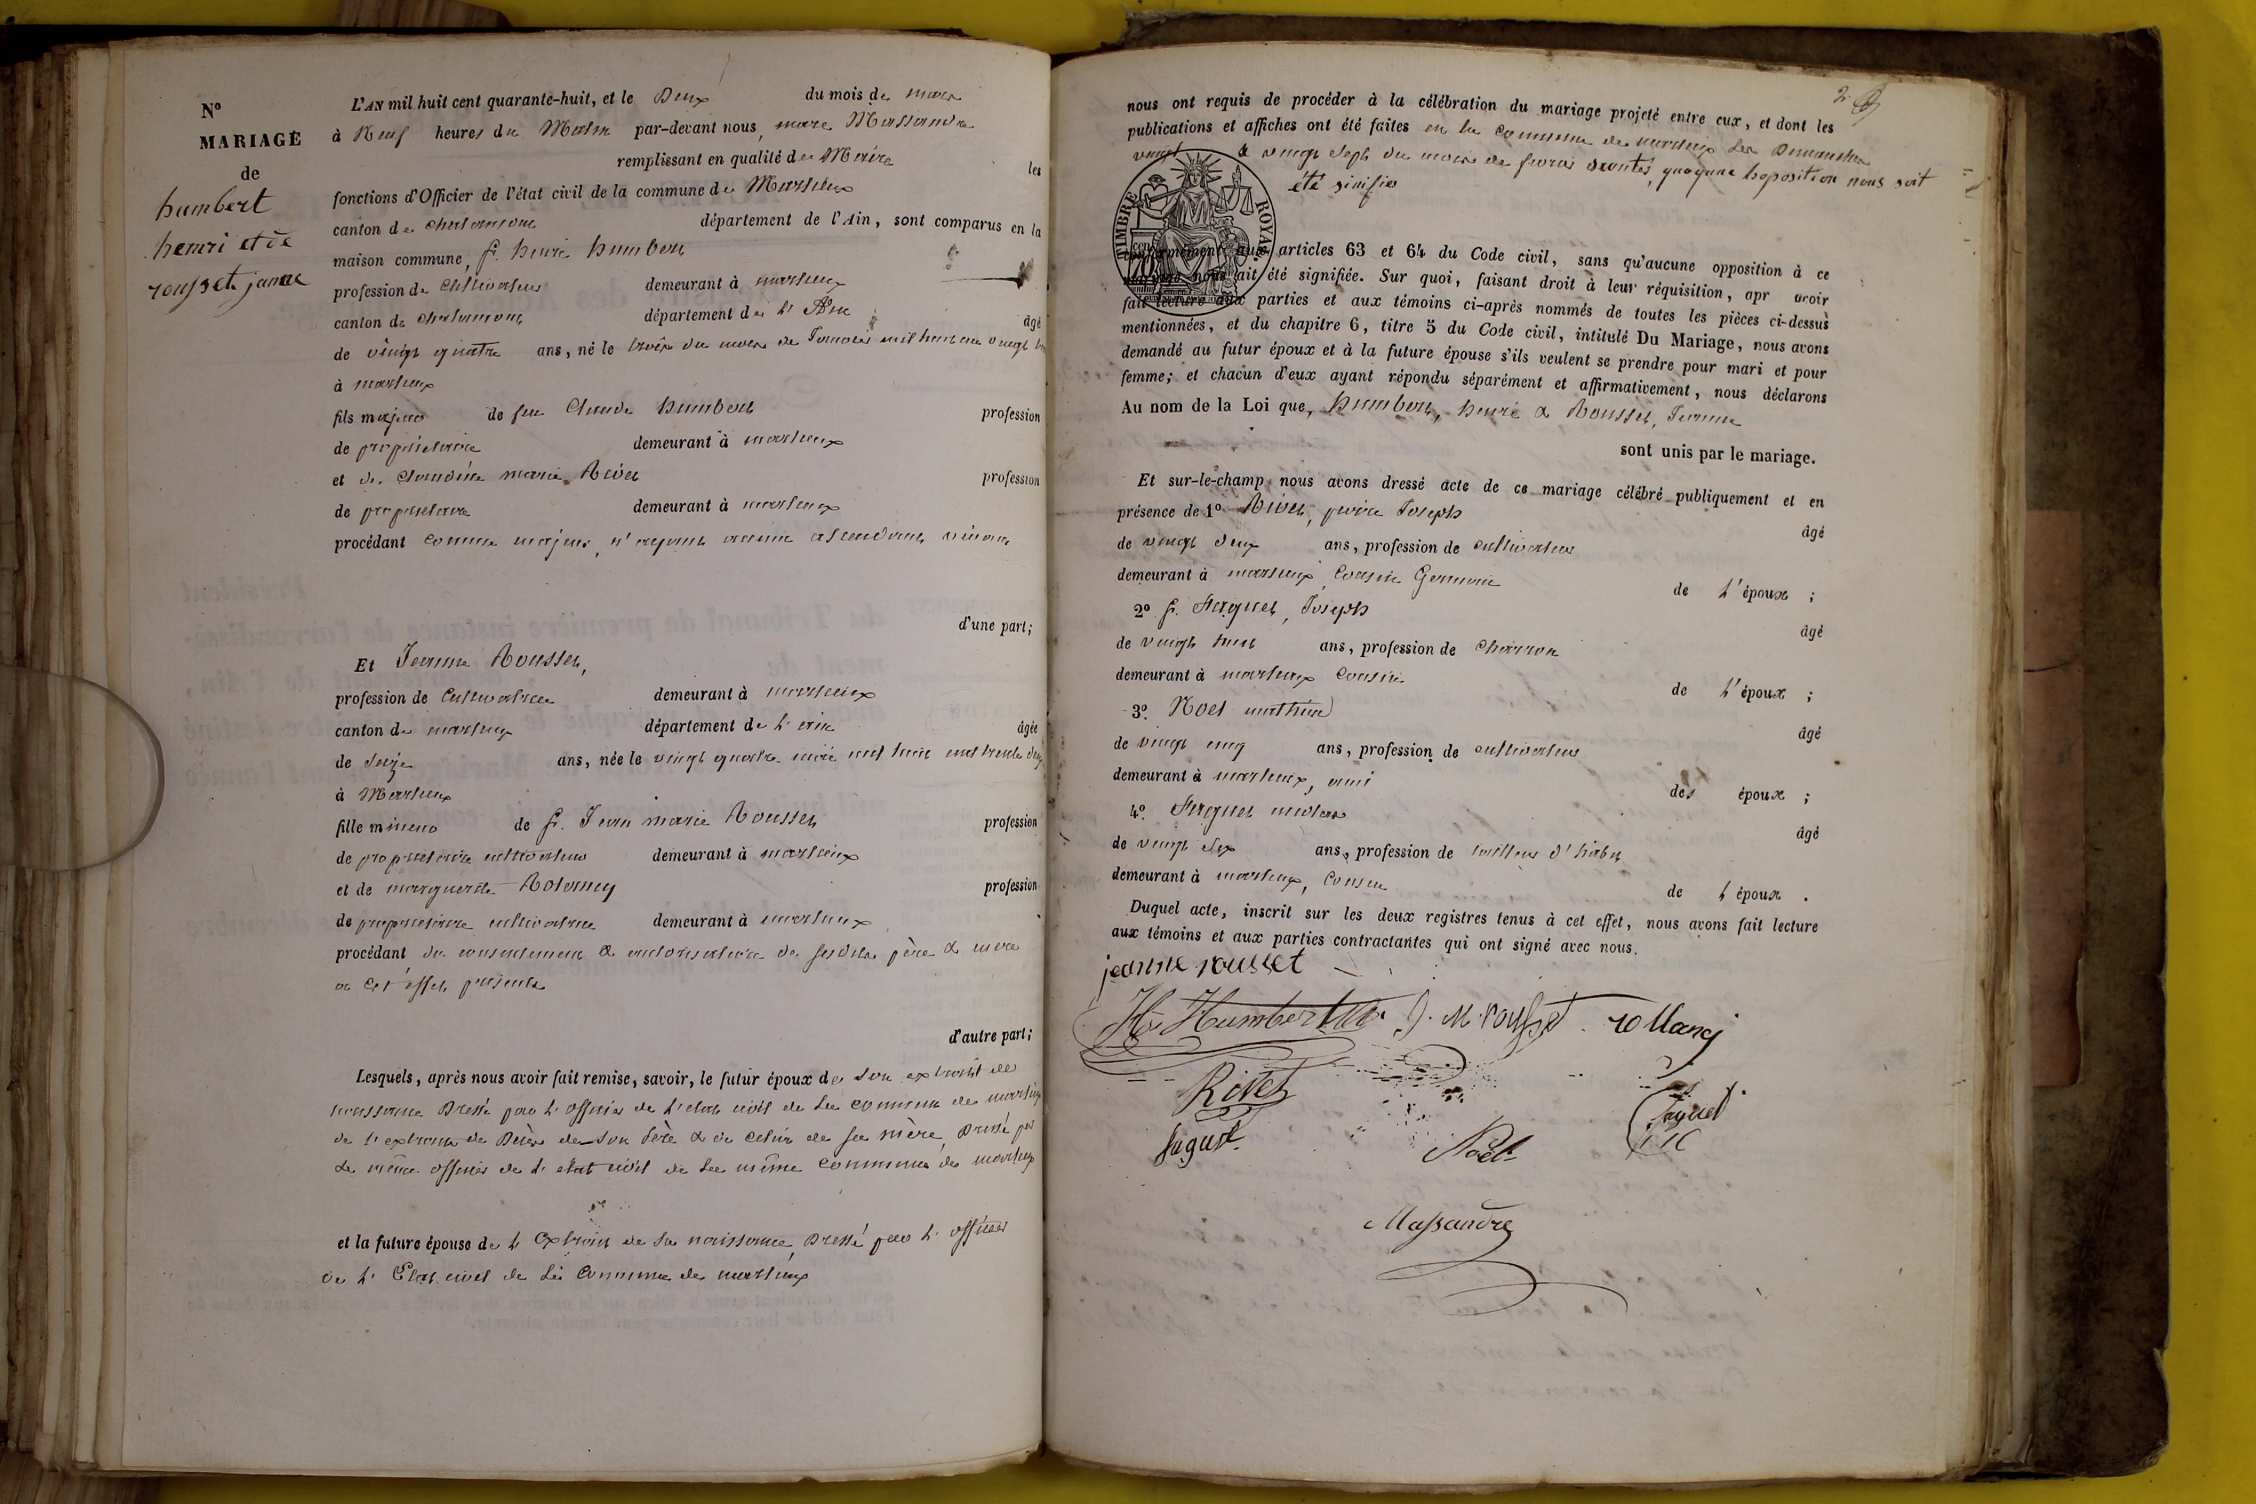 N°
MARIAGE
de
humbert
henri et de
rousset janne
L'AN mil huit cent quarante-huit, et le Deux du mois de mars
à Neuf heures du Matin par-devant nous, marc Massandre
remplissant en qualité de Maire les
fonctions d'Officier de l'état civil de la commune de Marlieux
canton de chalamont département de l'Ain, sont comparus en la
maison commune, henri humbert
profession de Cultivateur demeurant à marlieux
canton de chalamont département de l'Ain âgé
de vingt quatre ans, né le trois du mois de
à marlieux
fils majeur de feu Claude humbert profession
de propriétaire demeurant à marlieux
et de Claudine marie Rivet profession
de propriétaire demeurant à marlieux
procédant comme majeur, n'ayant aucun ascendant vivant
d'une part;
Et Jeanne Rousset,
profession de Cultivatrice demeurant à marlieux
canton de marlieux département de l'ain âgée
de seize ans, née le vingt quatre mai mil huit cent trente deux
à Marlieux
fille mineure de Jean marie Rousset profession
de propriétaire cultivateur demeurant à marlieux
et de marguerite profession
de propriétaire cultivatrice demeurant à marlieux
procédant du consentement & autorisation de ses dits père & mère
a cet effet présents
d'autre part;
Lesquels, après nous avoir fait remise, savoir, le futur époux de son extrait de
naissance Dressé par l'officier de l'état civil de la commune de marlieux
de l'extrait de Décès de son Père & de celui de sa mère, Dressé par
le même officier de l'état civil de la même commune de marlieux
et la future épouse de l'Extrait de sa naissance, Dressé par l'officier
de l'Etat civil de la Commune de marlieux
2
nous ont requis de procéder à la célébration du mariage projeté entre eux, et dont les
publications et affiches ont été faites en la commune de marlieux les Dimanches
vingt & vingt sept du mois de qu'aucune hoposition nous soit
été sinifiée
TIMBRE ROYAL
70
conformément aux articles 63 et 64 du Code civil, sans qu'aucune opposition à ce
mariage nous ait été signifiée. Sur quoi, faisant droit à leur réquisition, apr avoir
fait lecture aux parties et aux témoins ci-après nommés de toutes les pièces ci-dessus
mentionnées, et du chapitre 6, titre 5 du Code civil, intitulé Du Mariage, nous avons
demandé au futur époux et à la future épouse s'ils veulent se prendre pour mari et pour
femme; et chacun d'eux ayant répondu séparément et affirmativement, nous déclarons
Au nom de la Loi que, humbert, henri & Rousset, Jeanne
sont unis par le mariage.
Et sur-le-champ nous avons dressé acte de ce mariage célébré publiquement et en
présence de 1° Rivet, Joseph âgé
de vingt deux ans, profession de cultivateur
demeurant à marlieux, Cousin Germain de l'époux ;
2° Joseph âgé
de vingt huit ans, profession de Charron
demeurant à marlieux Cousin de l'époux ;
3° Noel mathieu âgé
de vingt cinq ans, profession de cultivateur
demeurant à marlieux, ami des époux ;
4° âgé
de vingt six ans, profession de tailleur d'habit
demeurant à marlieux, Cousin de l'époux.
Duquel acte, inscrit sur les deux registres tenus à cet effet, nous avons fait lecture
aux témoins et aux parties contractantes qui ont signé avec nous.
jeanne rousset
Humbert J. M. rousset
Rivet
Noël
Massandre